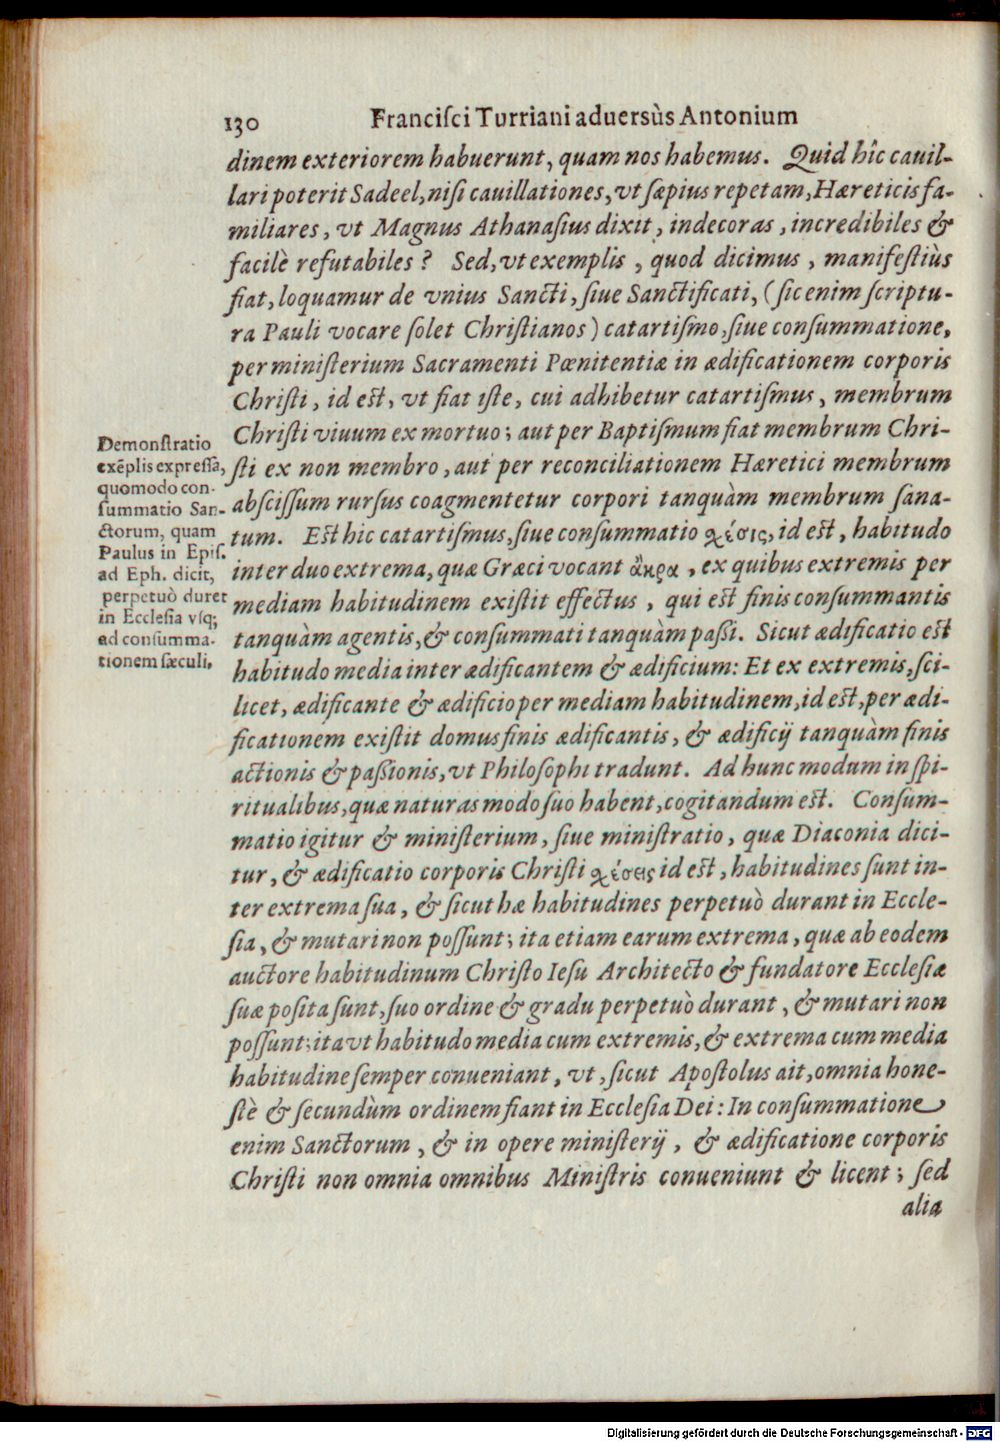 130 Franciſci Turriani aduersùs Antonium
dinem exteriorem habuerunt, quam nos habemus. Quid hîc cauil-
lari poterit Sadeel, niſi cauillationes, vt ſæpius repetam, Hæreticis fa-
miliares, vt Magnus Athanaſius dixit, indecoras, incredibiles &
facilè refutabiles? Sed, vt exemplis, quod dicimus, manifeſtiùs
fiat, loquamur de vnius Sancti, ſiue Sanctificati, (ſic enim ſcriptu-
ra Pauli vocare ſolet Chriſtianos) catartiſmo, ſiue conſummatione,
per miniſterium Sacramenti Pœnitentiæ in ædificationem corporis
Chriſti, id eſt, vt fiat iſte, cui adhibetur catartiſmus, membrum
Chriſti viuum ex mortuo; aut per Baptiſmum fiat membrum Chri-
ſti ex non membro, aut per reconciliationem Hæretici membrum
abſciſſum rurſus coagmentetur corpori tanquàm membrum ſana-
tum. Eſt hic catartiſmus, ſiue conſummatio χέσις, id eſt, habitudo
inter duo extrema, quæ Græci vocant ἄκρα, ex quibus extremis per
mediam habitudinem exiſtit effectus, qui eſt finis conſummantis
tanquàm agentis, & conſummati tanquàm paſſi. Sicut ædificatio eſt
habitudo media inter ædificantem & ædificium: Et ex extremis, ſci-
licet, ædificante & ædificio per mediam habitudinem, id eſt, per ædi-
ficationem exiſtit domus finis ædificantis, & ædificij tanquàm finis
actionis & paſſionis, vt Philoſophi tradunt. Ad hunc modum in ſpi-
ritualibus, quæ naturas modo ſuo habent, cogitandum eſt. Conſum-
matio igitur & miniſterium, ſiue miniſtratio, quæ Diaconia dici-
tur, & ædificatio corporis Chriſti χέσεις id eſt, habitudines ſunt in-
ter extrema ſua, & ſicut hæ habitudines perpetuò durant in Eccle-
ſia, & mutari non poſſunt; ita etiam earum extrema, quæ ab eodem
auctore habitudinum Chriſto Ieſu Architecto & fundatore Eccleſiæ
ſuæ poſita ſunt, ſuo ordine & gradu perpetuò durant, & mutari non
poſſunt; ita vt habitudo media cum extremis, & extrema cum media
habitudine ſemper conueniant, vt, ſicut Apoſtolus ait, omnia hone-
ſtè & ſecundùm ordinem fiant in Eccleſia Dei: In conſummatione
enim Sanctorum, & in opere miniſterij, & ædificatione corporis
Chriſti non omnia omnibus Miniſtris conueniunt & licent; ſed
alia
Demonſtratio
exēplis expreſſa,
quomodo con-
ſummatio San-
ctorum, quam
Paulus in Epiſ.
ad Eph. dicit,
perpetuò duret
in Eccleſia vſq;
ad conſumma-
tionem ſæculi.
Digitalisierung gefördert durch die Deutsche Forschungsgemeinschaft - DFG